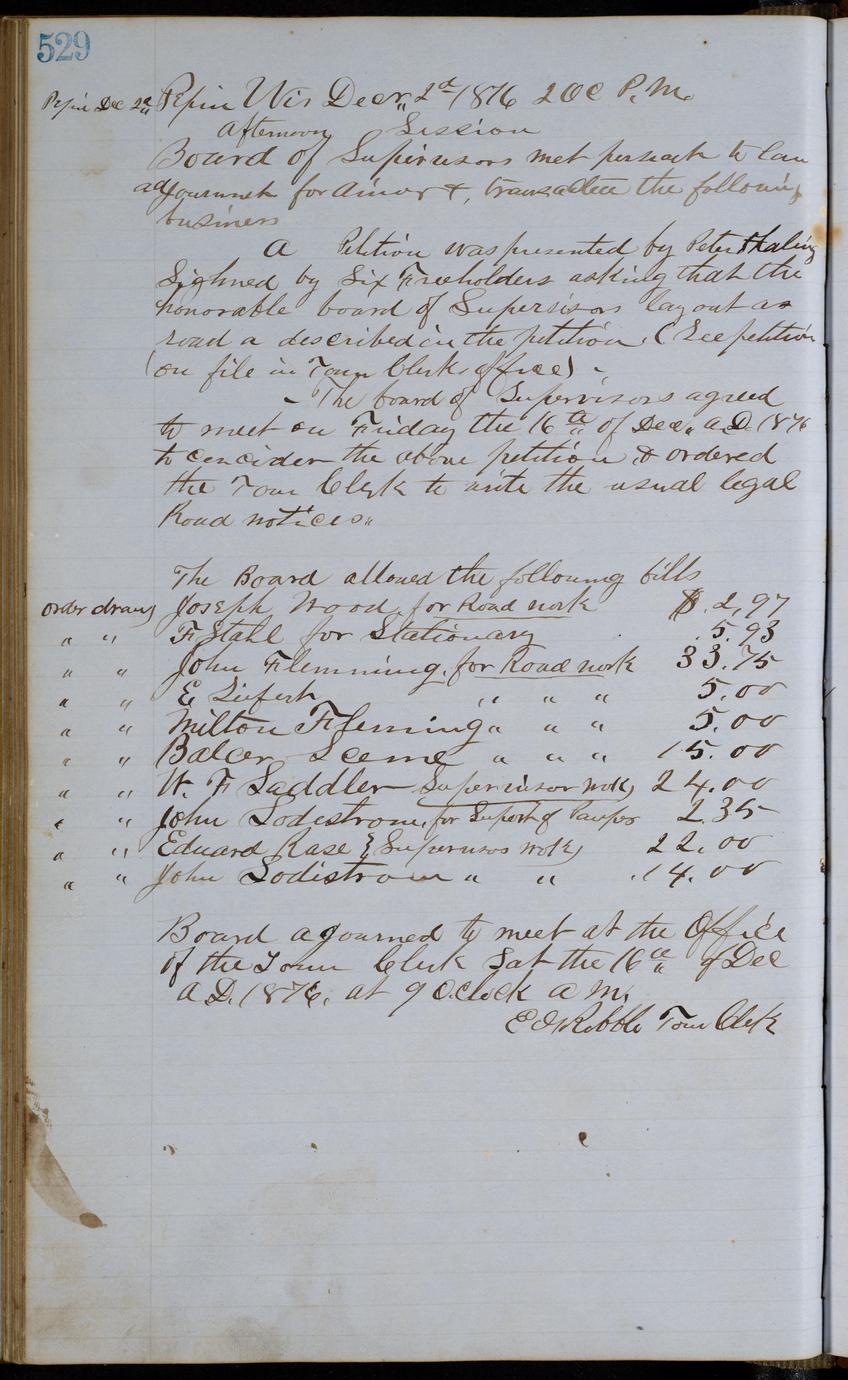 529
Pepin Dec 2d Pepin Wis Decr,, 2d 1876 2 OC P.M.
Afternoon Session
Board of Supervisors met persuant to
adjournment for dinner &, transacted the following
business
A Petition was presented by Peter
Sighned by Six Freeholders asking that the
honorable board of Supervisors lay out a
road a described in the petition. (See petition
(on file in Town Clerks office) -
- The board of Supervisors agreed
to meet on Friday the 16th of Dec,, A.D. 1876
to concider the above petition & ordered
the Town Clerk to write the usual legal
Road notices,,
The Board allowed the following bills
order drawn Joseph Wood, for Road work $. 2,97
" " F Stahl for Stationary 5.93
" " John Flemming. for Road work 33.75
" " E Seifert " " " 5.00
" " Milton Flleming " " " 5.00
" " Balcer " " " 15.00
" " W. F Saddler Supervisor work 24.00
" " John Lodestrom, for Suport of Pauper 2.35
" " Eduard Rase { Supervisor work) 22.00
" " John Lodistrom " " .14.00
Board agourned to meet at the Office
of the Town Clerk Sat the 16th of Dec
A.D. 1876, at 9 O.clock A M.
Kibble Town Clerk